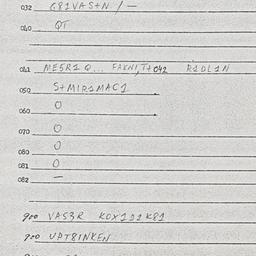 032 G81VAS+N / —
040 QT
041 ME5R1 Q... FAKNI,T+042 R1DL1N
050 S+MIR1MAC1
060 0
070 0
080 0
081 0
082 —
900 VAS3R KOX111K81
700 UPT8INKEN